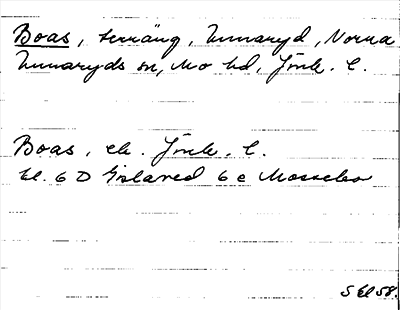 Boas, terräng, Unnaryd, Norra
Unnaryds sn, Mo hd, Jönk. l.
Boas, ek. Jönk. l.
Bl. 6 D Gislared 6 e Mossebo
S El 58.